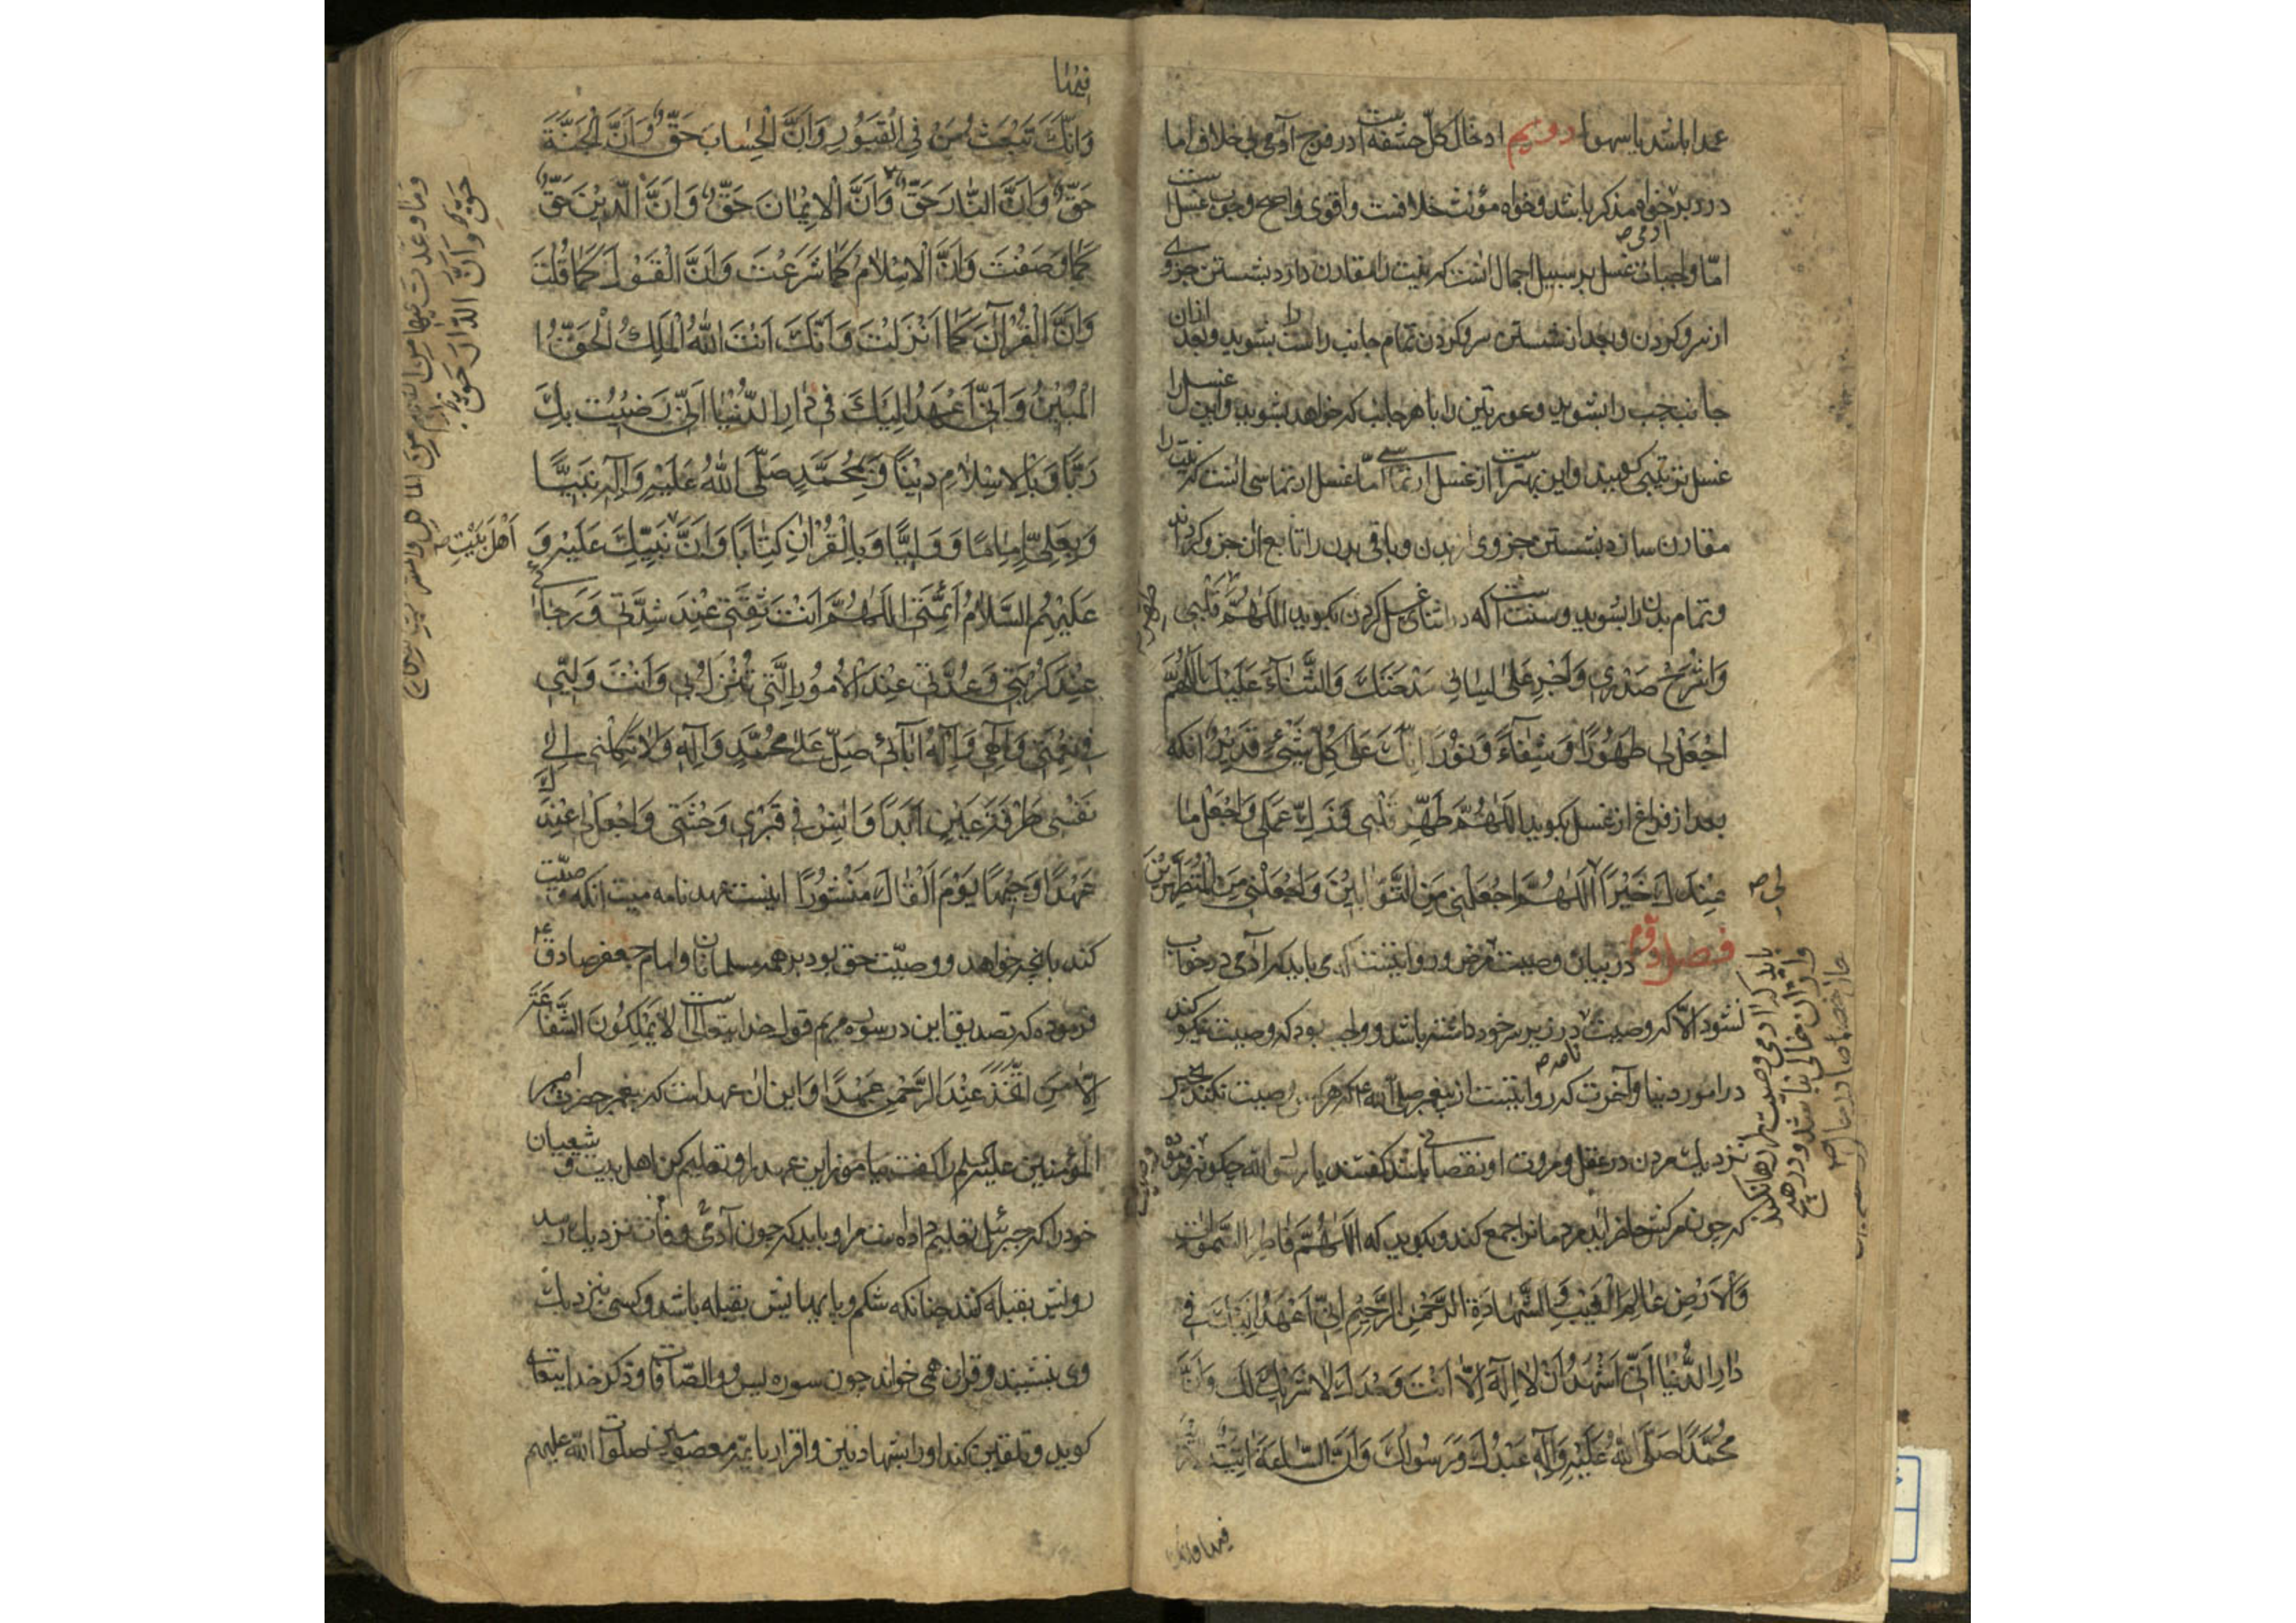 عمدا باشد یا سهوا دویم ادخال کل حشفه است در فرج آدمی بی خلاف اما
در دبر خواه مذکر باشد و خواه مؤنث خلافست و اقوی و اصح وجوب غسل است
اما واجبات غسل بر سبیل اجمال انست که نیت را مقارن دارد بشستن جزوی
از سر و کردن و بعد از شستن سر و کردن تمام جانب راست را بشوید و بعد ازان
جانب چپ را بشوید و عورتین را با هر جانب که خواهد بشوید و این غسل را
غسل ترتیبی کویند و این بهتر است از غسل ارتماسی اما غسل ارتماسی انست که نیت را
مقارن سازد بشستن جزوی از بدن و باقی بدن را تابع ان جزو کرداند
و تمام بدن را بشوید و سنت است که در اثنای غسل کردن بکوید اللهم طهر قلبی
وَاشْرَحْ صَدْرِي وَاَجْرِ عَلٰی لِسَانِي مِدْحَتَكَ وَالثَّنَاءَ عَلَيْكَ اَللّٰهُمَّ
اجْعَلْ لِي طَهُورًا وَشِفَاءً وَنُورًا اِنَّكَ عَلٰی كُلِّ شَيْءٍ قَدِيرٌ انکه
بعد از فراغ از غسل بکوید اللهم طَهِّرْ قَلْبِي وَزَكِّ عَمَلِي وَاجْعَلْ مَا
عِنْدَكَ خَيْرًا لی اَللّٰهُمَّ اجْعَلْنِي مِنَ التَّوَّابِينَ وَاجْعَلْنِي مِنَ الْمُتَطَهِّرِينَ
فصل دوم در بیان وصیت فرض و روایتست که می باید که آدمی در خواب
نشود الا که وصیت نامه در زیر سر خود داشته باشد و واجب بود که وصیت نیکو کند
در امور دنیا و آخرت که روایتست از پیغمبر صلی الله که هرکه وصیت نکند بخیر
نزدیک مردن در عقل و مروت او نقصانی باشد کفتند یا رسول الله چکونه فرمود
که چون مرکش حاضر اید مردمانرا جمع کند و بکوید که اَللّٰهُمَّ فَاطِرَ السَّمٰوَاتِ
وَالْاَرْضِ عَالِمَ الْغَيْبِ وَالشَّهَادَةِ الرَّحْمٰنَ الرَّحِيمَ اِنِّي اَعْهَدُ اِلَيْكَ فِي
دَارِ الدُّنْيَا اَنِّي اَشْهَدُ اَنْ لَا اِلٰهَ اِلَّا اَنْتَ وَحْدَكَ لَا شَرِيكَ لَكَ وَاَنَّ
مُحَمَّدًا صَلَّى اللهُ عَلَيْهِ وَآلِهِ عَبْدُكَ وَرَسُولُكَ وَاَنَّ السَّاعَةَ اٰتِيَةٌ
لی صح
باید که ادمی وصیت را رها نکند
و از ان خالی نباشد و در هیچ
وَاَنَّكَ تَبْعَثُ مَنْ فِي الْقُبُورِ وَاَنَّ الْحِسَابَ حَقٌّ وَاَنَّ الْجَنَّةَ
حَقٌّ وَاَنَّ النَّارَ حَقٌّ وَاَنَّ الْاِيْمَانَ حَقٌّ وَاَنَّ الدِّيْنَ حَقٌّ
كَمَا وَصَفْتَ وَاَنَّ الْاِسْلَامَ كَمَا شَرَعْتَ وَاَنَّ الْقَوْلَ كَمَا قُلْتَ
وَاَنَّ الْقُرْآنَ كَمَا اَنْزَلْتَ وَاَنَّكَ اَنْتَ اللهُ الْمَلِكُ الْحَقُّ
الْمُبِينُ وَاَنِّي اَعْهَدُ اِلَيْكَ فِي دَارِ الدُّنْيَا اَنِّي رَضِيْتُ بِكَ
رَبًّا وَبِالْاِسْلَامِ دِيْنًا وَبِمُحَمَّدٍ صَلَّى اللهُ عَلَيْهِ وَآلِهِ نَبِيًّا
وَبِعَلِيٍّ اِمَامًا وَوَلِيًّا وَبِالْقُرْآنِ كِتَابًا وَاَنَّ اَهْلَ بَيْتِ نَبِيِّكَ عَلَيْهِ وَ
عَلَيْهِمُ السَّلَامُ اَئِمَّتِي اَللّٰهُمَّ اَنْتَ ثِقَتِي عِنْدَ شِدَّتِي وَرَجَائِي
عِنْدَ كُرْبَتِي وَعُدَّتِي عِنْدَ الْاُمُورِ الَّتِي تُنْزَلُ بِي وَاَنْتَ وَلِيِّي
فِي نِعْمَتِي وَاِلٰهِي وَاِلٰهُ اٰبَائِي صَلِّ عَلٰی مُحَمَّدٍ وَآلِهِ وَلَا تَكِلْنِي اِلٰی
نَفْسِي طَرْفَةَ عَيْنٍ اَبَدًا وَاٰنِسْ فِي قَبْرِي وَحْشَتِي وَاجْعَلْ لِي عِنْدَكَ
عَهْدًا يَوْمَ اَلْقَاكَ مَنْشُورًا اینست عهد نامه میت انکه وصیت
کند بانچه خواهد و وصیت حق بود بر همه مسلمانان و امام جعفر صادق
فرموده که تصدیق این در سوره مریم قول خدایتعالی است لَا يَمْلِكُونَ الشَّفَاعَةَ
اِلَّا مَنِ اتَّخَذَ عِنْدَ الرَّحْمٰنِ عَهْدًا و این ان عهد است که پیغمبر حضرت امیر
المؤمنین علیه السلم را کفت بیاموز این عهد را و تعلیم کن اهل بیت و شیعیان
خود را که جبرئیل تعلیم داده است مرا و باید که چون آدمی را وفات نزدیک رسد
رویش بقبله کنند چنانکه شکم و پایهایش بقبله باشد و کسی نزدیک
وی بنشیند و قران همی خواند چون سوره یس و والصافات و ذکر خدایتعالی
کوید و تلقین کند او را بشهادتین و اقرار بائمه معصومین صلوات الله علیهم
حق وان النار حق
اَهْلَ بَيْتِ صح